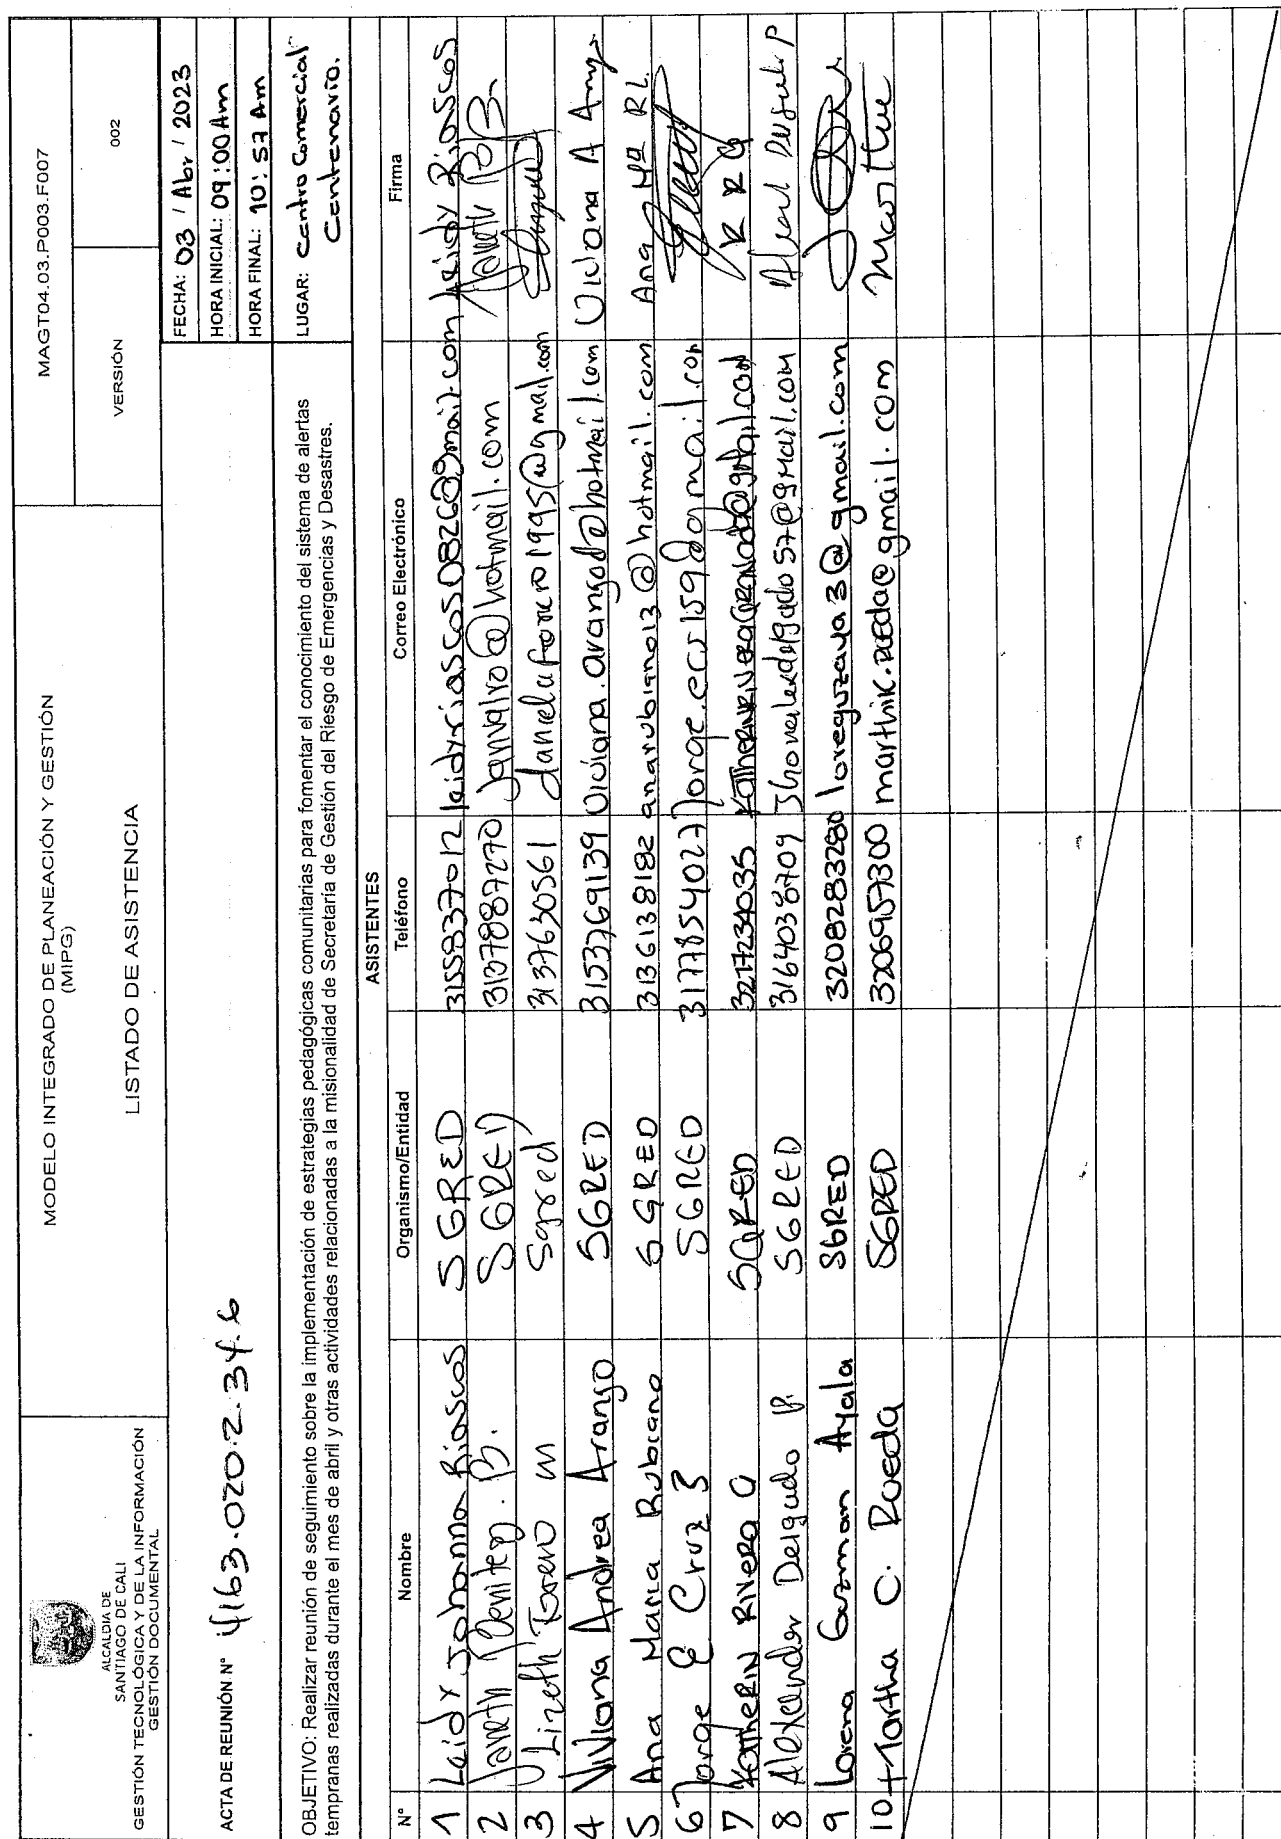 ALCALDIA DE
SANTIAGO DE CALI
GESTIÓN TECNOLÓGICA Y DE LA INFORMACIÓN
GESTIÓN DOCUMENTAL
MODELO INTEGRADO DE PLANEACIÓN Y GESTIÓN
(MIPG)
LISTADO DE ASISTENCIA
MAGT04.03.P003.F007
VERSIÓN 002
ACTA DE REUNIÓN N° 4163.020.2.34.6
FECHA: 03 / Abr / 2023
HORA INICIAL: 09:00 Am
HORA FINAL: 10:57 Am
LUGAR: Centro Comercial
Centenario.
OBJETIVO: Realizar reunión de seguimiento sobre la implementación de estrategias pedagógicas comunitarias para fomentar el conocimiento del sistema de alertas
tempranas realizadas durante el mes de abril y otras actividades relacionadas a la misionalidad de Secretaría de Gestión del Riesgo de Emergencias y Desastres.
ASISTENTES
N° Nombre Organismo/Entidad Teléfono Correo Electrónico Firma
1 Leidy Johanna Riascos SGRED 3155837012 leidyriascos0826@gmail.com Leidy Riascos
2 Janeth Benitez B. SGRED 3137887270 janvalro@hotmail.com Janeth B B.
3 Lizeth Forero M Sgred 3137630561 danielaforero1995@gmail.com
4 Viviana Andrea Arango SGRED 3153769139 viviana.arango@hotmail.com Viviana A Arango
5 Ana Maria Rubiano SGRED 3136138182 anarubiano13@hotmail.com Ana Mª RL.
6 Jorge E Cruz S SGRED 3177854027 jorge.ecs159@gmail.com
7 Katherin Rivera G SGRED 3217234035 katherinriveragranada@gmail.com K R G
8 Alexander Delgado P. SGRED 3164038709 Jhonalexdelgado57@gmail.com
9 Lorena Guzman Ayala SGRED 3208283280 loreguzaya3@gmail.com
10 Martha C. Rueda SGRED 3206957300 marthik.rueda@gmail.com Martha